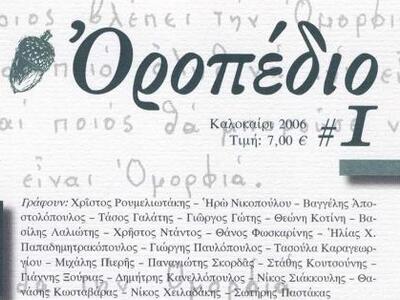 ποιος βλέπει την Ὀμορφι
Ὀροπέδιο
Καλοκαίρι 2006
Τιμή: 7,00 €
#1
αὶ ποιός θὰ μποροῦσε ν
εἶναι Ὀμορφιά.
Γράφουν: Χρῖστος Ρουμελιωτάκης – Ἡρὼ Νικοπούλου – Βαγγέλης Ἀπο-
στολόπουλος – Τάσος Γαλάτης – Γιῶργος Γώτης – Θεώνη Κοτίνη – Βα-
σίλης Λαλιώτης – Χρῆστος Ντάντος – Θάνος Φωσκαρίνης – Ἠλίας Χ.
Παπαδημητρακόπουλος – Γιώργης Παυλόπουλος – Τασούλα Καραγεωρ-
γίου – Μιχάλης Πιερῆς – Παναγιώτης Σκορδᾶς – Στάθης Κουτσούνης –
Γιάννης Ξούριας – Δημήτρης Κανελλόπουλος – Νίκος Σιάκκουλης – Θα-
νάσης Κωσταβάρας – Νίκος Χειλαδάκης – Σωτήρης Παστάκας